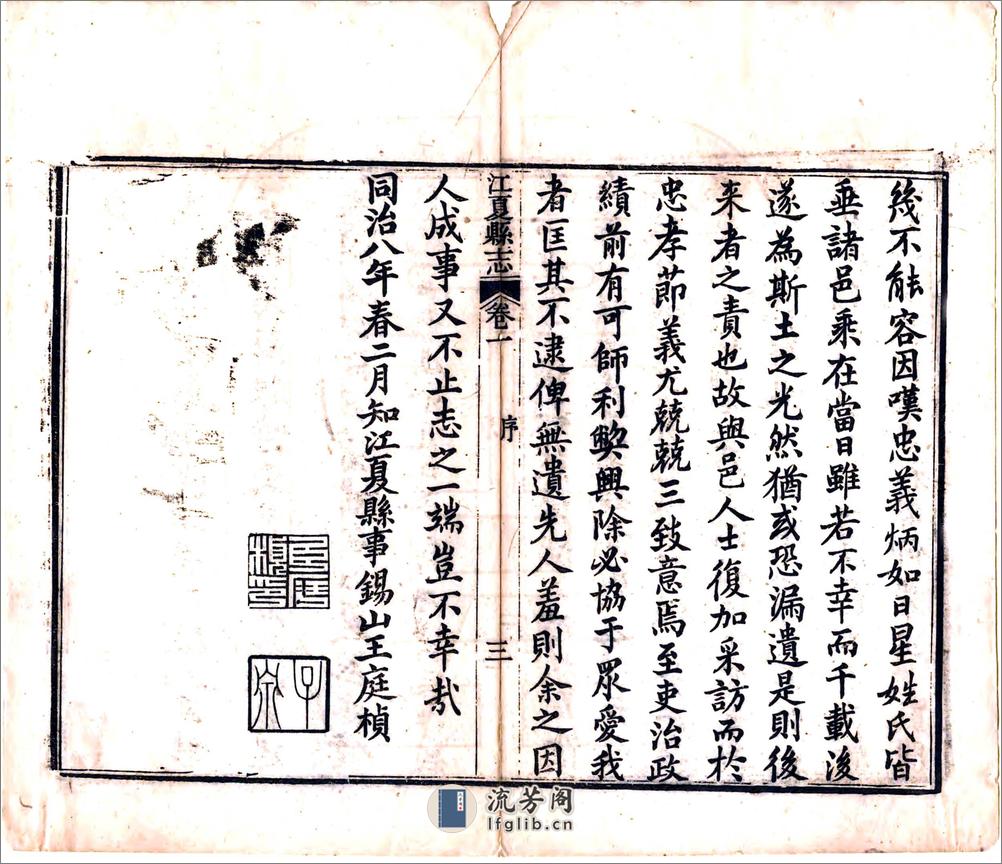 幾不能容因嘆忠義炳如日星姓氏皆
垂諸邑乘在當日雖若不幸而千載後
遂為斯土之光然猶或恐漏遺是則後
来者之責也故與邑人士復加采訪而於
忠孝節義尤兢兢三致意焉至吏治政
績前有可師利弊興除必協于眾愛我
者匡其不逮俾無遺先人羞則余之因
江夏縣志 卷一 序 三
人成事又不止志之一端豈不幸哉
同治八年春二月知江夏縣事錫山王庭楨
流芳阁
lfglib.cn